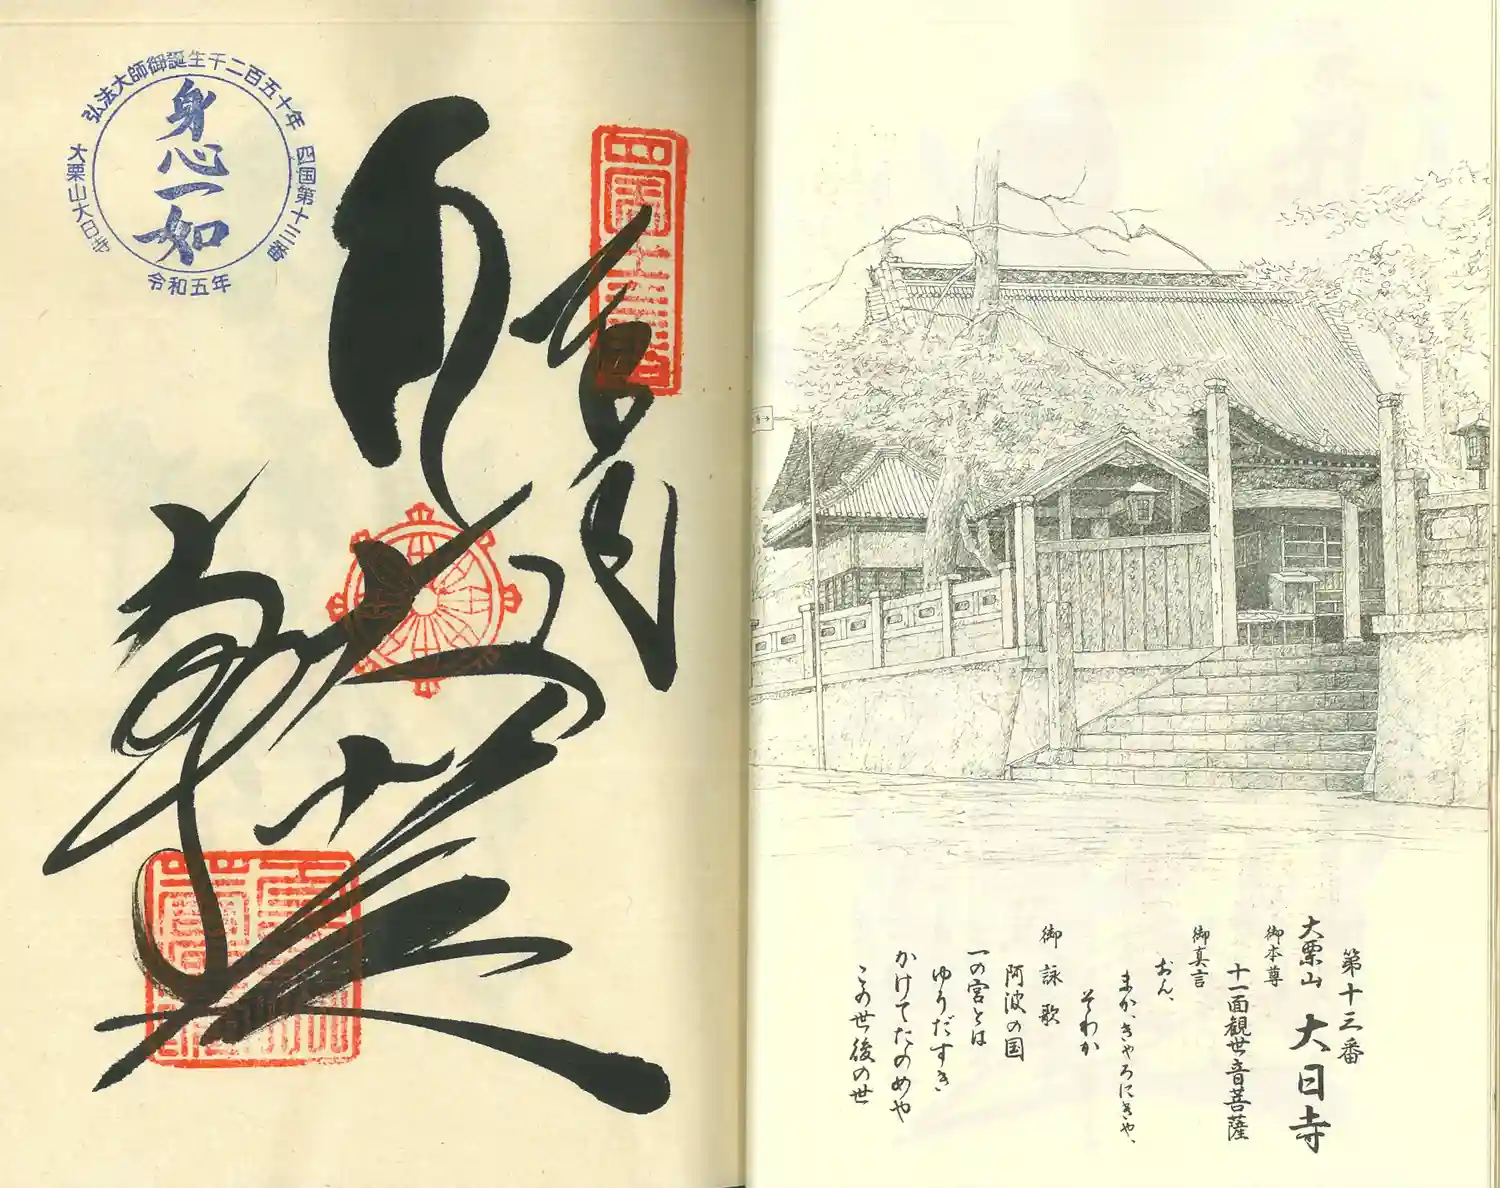 弘法大師御誕生千二百五十年
四国第十三番
大栗山大日寺
身心一如
令和五年
奉
四国十三番
第十三番
大栗山 大日寺
御本尊
十一面観世音菩薩
御真言
おん、
まか、きゃろにきや、
そわか
御詠歌
阿波の国
一の宮とは
ゆうだすき
かけてたのめや
この世後の世